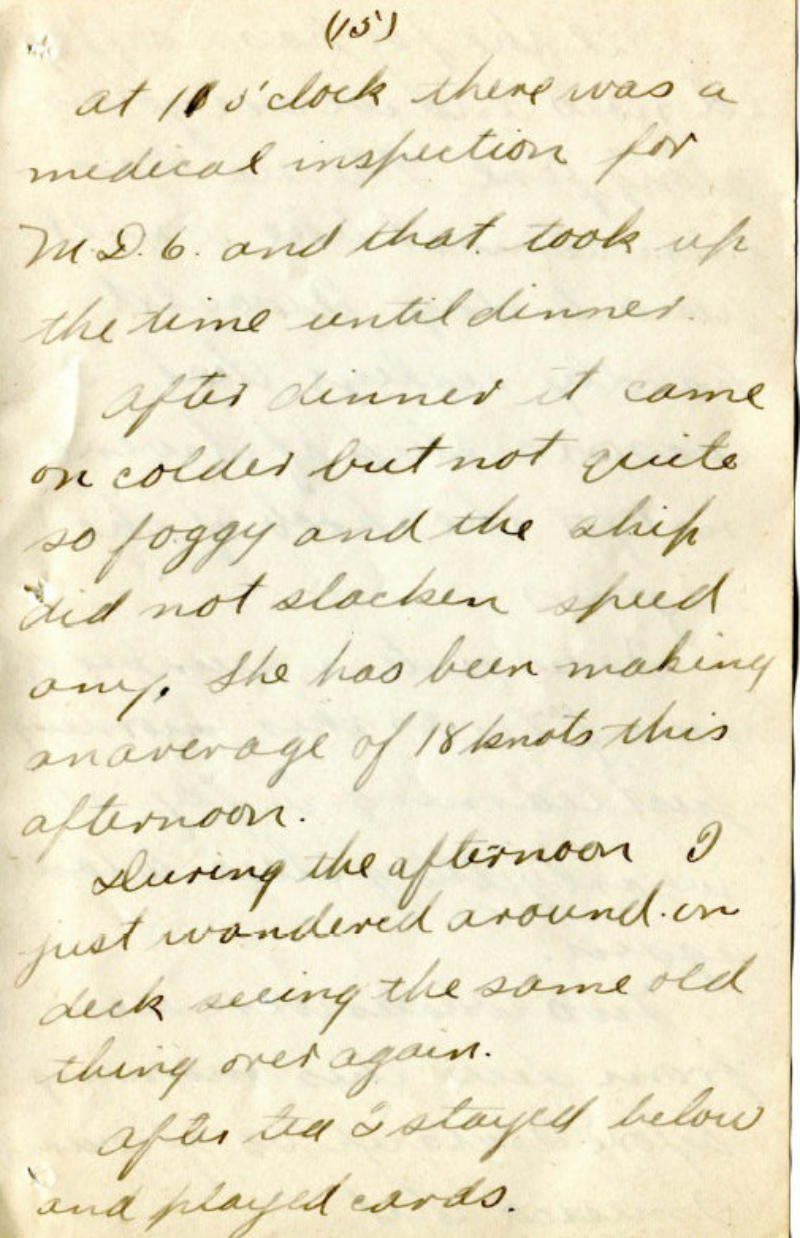 (15)
at 11 o'clock there was a
medical inspection for
M.D. 6. and that took up
the time until dinner.
after dinner it came
on colder but not quite
so foggy and the ship
did not slacken speed
any. She has been making
an average of 18 knots this
afternoon.
During the afternoon I
just wandered around on
deck seeing the same old
thing over again.
after tea I stayed below
and played cards.